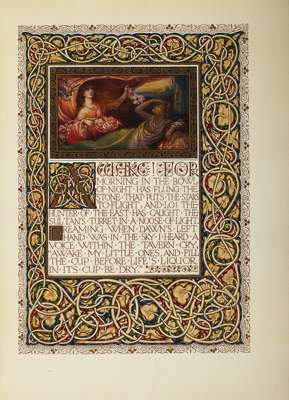 AWAKE! FOR
MORNING IN THE BOWL
OF NIGHT HAS FLUNG THE
STONE THAT PUTS THE STARS
TO FLIGHT: AND LO! THE
HUNTER OF THE EAST HAS CAUGHT THE
SULTAN'S TURRET IN A NOOSE OF LIGHT.
DREAMING WHEN DAWN'S LEFT
HAND WAS IN THE SKY I HEARD A
VOICE WITHIN THE TAVERN CRY,
"AWAKE MY LITTLE ONES, AND FILL
THE CUP BEFORE LIFE'S LIQUOR
IN ITS CUP BE DRY."